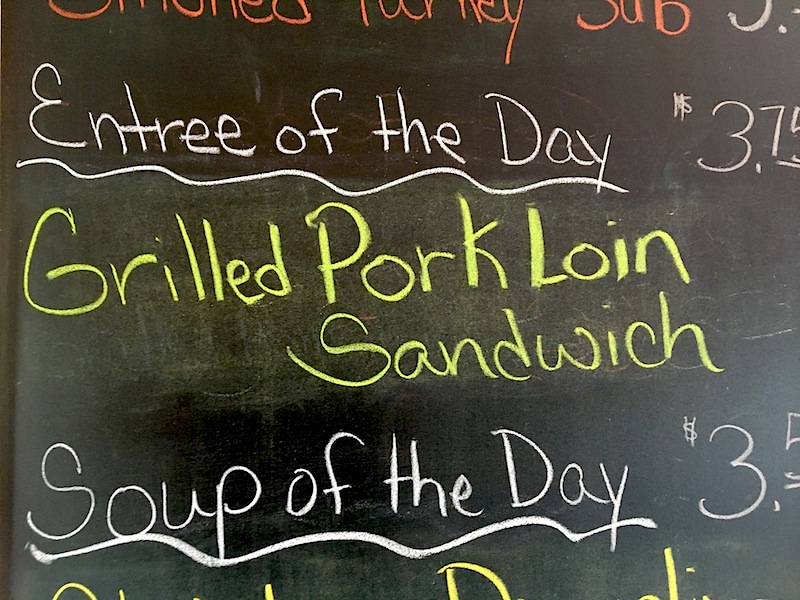 Smoked Turkey Sub
Entree of the Day $3.75
Grilled Pork Loin
Sandwich
Soup of the Day $3.5